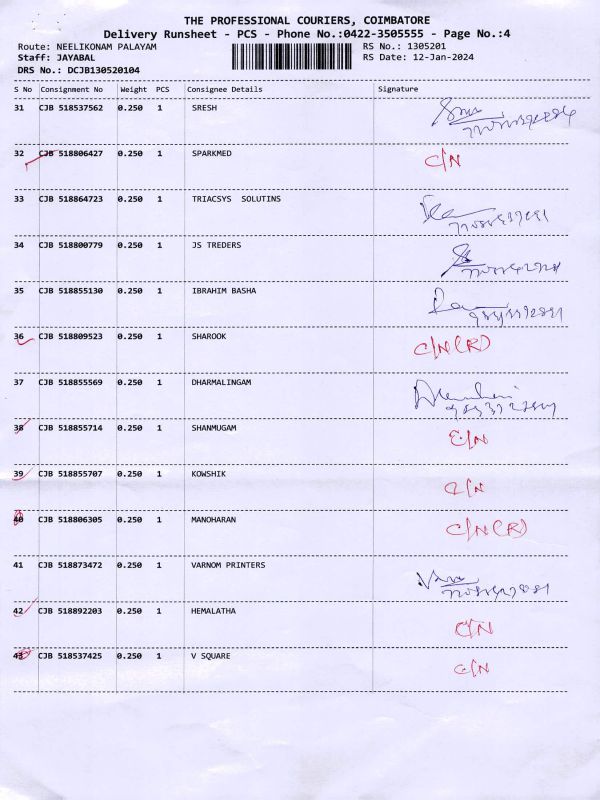 THE PROFESSIONAL COURIERS, COIMBATORE
Delivery Runsheet - PCS - Phone No.:0422-3505555 - Page No.:4
Route: NEELIKONAM PALAYAM RS No.: 1305201
Staff: JAYABAL RS Date: 12-Jan-2024
DRS No.: DCJB130520104
S No Consignment No Weight PCS Consignee Details Signature
31 CJB 518537562 0.250 1 SRESH
32 CJB 518806427 0.250 1 SPARKMED C/N
33 CJB 518864723 0.250 1 TRIACSYS SOLUTINS
34 CJB 518800779 0.250 1 JS TREDERS
35 CJB 518855130 0.250 1 IBRAHIM BASHA
36 CJB 518809523 0.250 1 SHAROOK C/N(R)
37 CJB 518855569 0.250 1 DHARMALINGAM
38 CJB 518855714 0.250 1 SHANMUGAM C/N
39 CJB 518855707 0.250 1 KOWSHIK C/N
40 CJB 518806305 0.250 1 MANOHARAN C/N(R)
41 CJB 518873472 0.250 1 VARNOM PRINTERS
42 CJB 518892203 0.250 1 HEMALATHA C/N
43 CJB 518537425 0.250 1 V SQUARE C/N